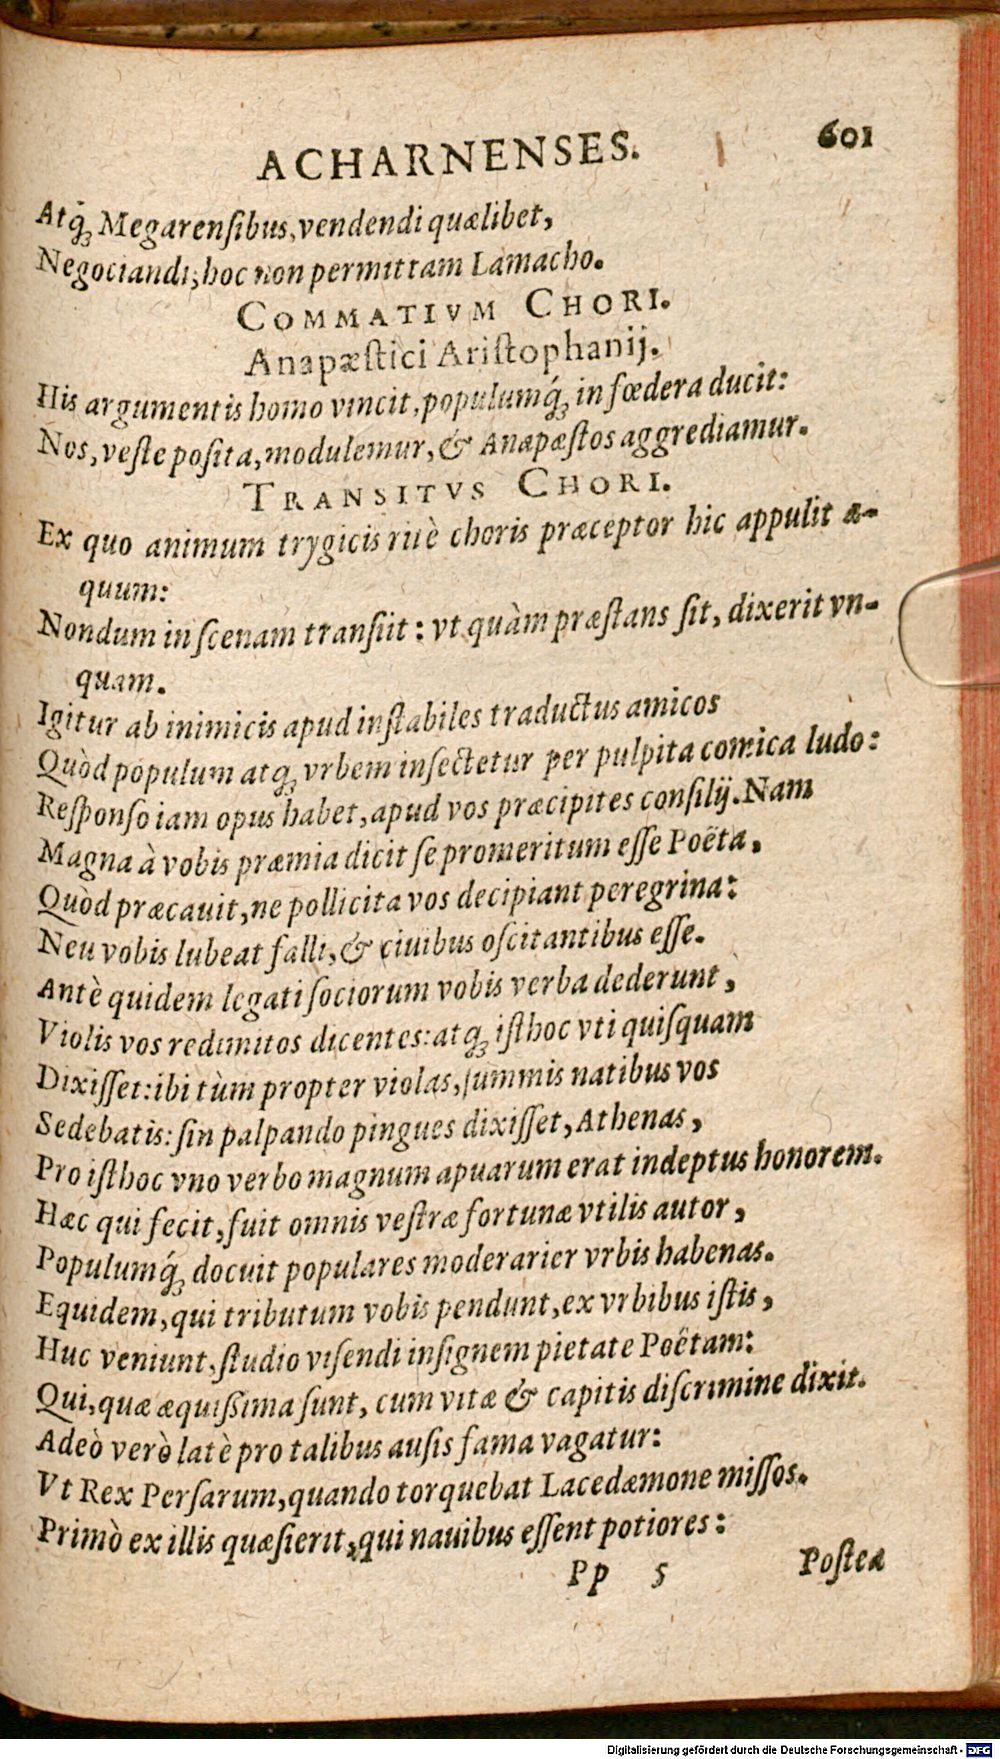 ACHARNENSES. 601
Atq́ꝫ Megarensibus, vendendi quælibet,
Negociandi; hoc non permittam Lamacho.
COMMATIVM CHORI.
Anapæstici Aristophanij.
His argumentis homo vincit, populumq́ꝫ in fœdera ducit:
Nos, veste posita, modulemur, & Anapæstos aggrediamur.
TRANSITVS CHORI.
Ex quo animum trygicis ritè choris præceptor hic appulit æ-
quum:
Nondum in scenam transiit: vt quàm præstans sit, dixerit vn-
quam.
Igitur ab inimicis apud instabiles traductus amicos
Quòd populum atqꝫ vrbem insectetur per pulpita comica ludo:
Responso iam opus habet, apud vos præcipites consilij. Nam
Magna à vobis præmia dicit se promeritum esse Poëta,
Quòd præcauit, ne pollicita vos decipiant peregrina:
Neu vobis lubeat falli, & ciuibus oscitantibus esse.
Antè quidem legati sociorum vobis verba dederunt,
Violis vos redimitos dicentes: atqꝫ isthoc vti quisquam
Dixisset: ibi tùm propter violas, summis natibus vos
Sedebatis: sin palpando pingues dixisset, Athenas,
Pro isthoc vno verbo magnum apuarum erat indeptus honorem.
Hæc qui fecit, fuit omnis vestræ fortunæ vtilis autor,
Populumq́ꝫ docuit populares moderarier vrbis habenas.
Equidem, qui tributum vobis pendunt, ex vrbibus istis,
Huc veniunt, studio visendi insignem pietate Poëtam:
Qui, quæ æquissima sunt, cum vitæ & capitis discrimine dixit.
Adeò verò latè pro talibus ausis fama vagatur:
Vt Rex Persarum, quando torquebat Lacedæmone missos.
Primò ex illis quæsierit, qui nauibus essent potiores:
Pp 5 Posteæ
Digitalisierung gefördert durch die Deutsche Forschungsgemeinschaft - DFG